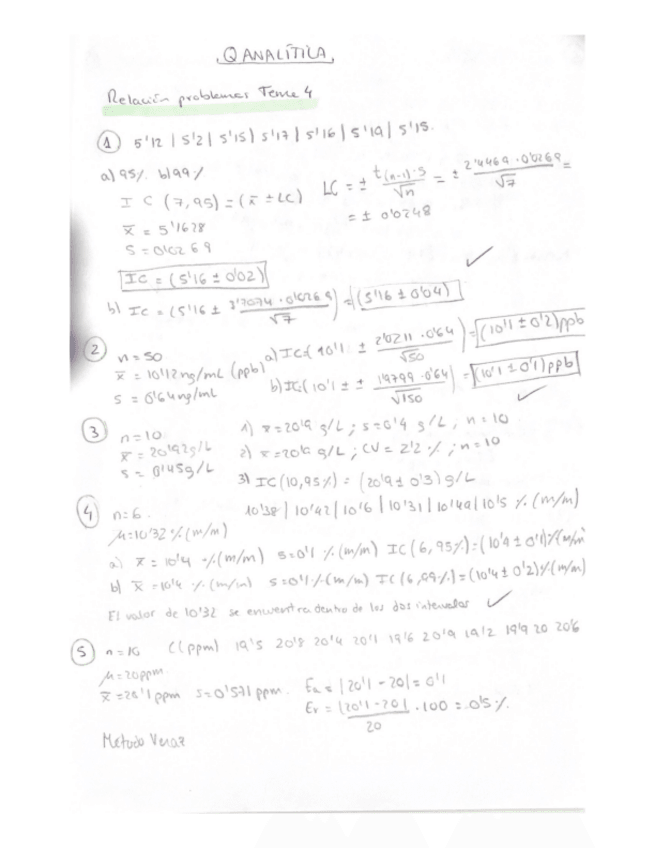 Q ANALÍTICA
Relación problemas Tema 4
① 5'12 | 5'2 | 5'15 | 5'17 | 5'16 | 5'19 | 5'15.
a) 95% b) 99%
IC (7,95) = (x̄ ± LC) LC = ± t(n-1)·S / √n = ± 2'4469 · 0'0269 / √7 =
= ± 0'0248
x̄ = 5'1628
S = 0'0269
IC = (5'16 ± 0'02)
b) IC = (5'16 ± 3'7074 · 0'0269 / √7) = (5'16 ± 0'04)
② n = 50
x̄ = 10'12 ng/mL (ppb)
S = 0'64 ng/mL
a) IC = ( 10'1 ± 2'0211 · 0'64 / √50 ) = (10'1 ± 0'2) ppb
b) IC ( 10'1 ± ± 1'9799 · 0'64 / √150 ) = (10'1 ± 0'1) ppb
③ n = 10
x̄ = 20'92 g/L
S = 0'45 g/L
1) x̄ = 20'9 g/L ; S = 0'4 g/L ; n = 10
2) x̄ = 20'9 g/L ; CV = 2'2 % ; n = 10
3) IC (10,95%) = (20'9 ± 0'3) g/L
④ n = 6 10'38 | 10'42 | 10'6 | 10'31 | 10'49 | 10'5 % (m/m)
μ = 10'32 % (m/m)
a) x̄ = 10'4 % (m/m) S = 0'1 % (m/m) IC (6, 95%) = (10'4 ± 0'1) % (m/m)
b) x̄ = 10'4 % (m/m) S = 0'1 % (m/m) IC (6, 99%) = (10'4 ± 0'2) % (m/m)
El valor de 10'32 se encuentra dentro de los dos intervalos
⑤ n = 10 C (ppm) 19'5 20'8 20'4 20'1 19'6 20'9 19'2 19'9 20 20'6
μ = 20 ppm
x̄ = 20'1 ppm S = 0'571 ppm. Ea = |20'1 - 20| = 0'1
Er = |20'1 - 20| / 20 · 100 = 0'5 %.
Metodo Veraz